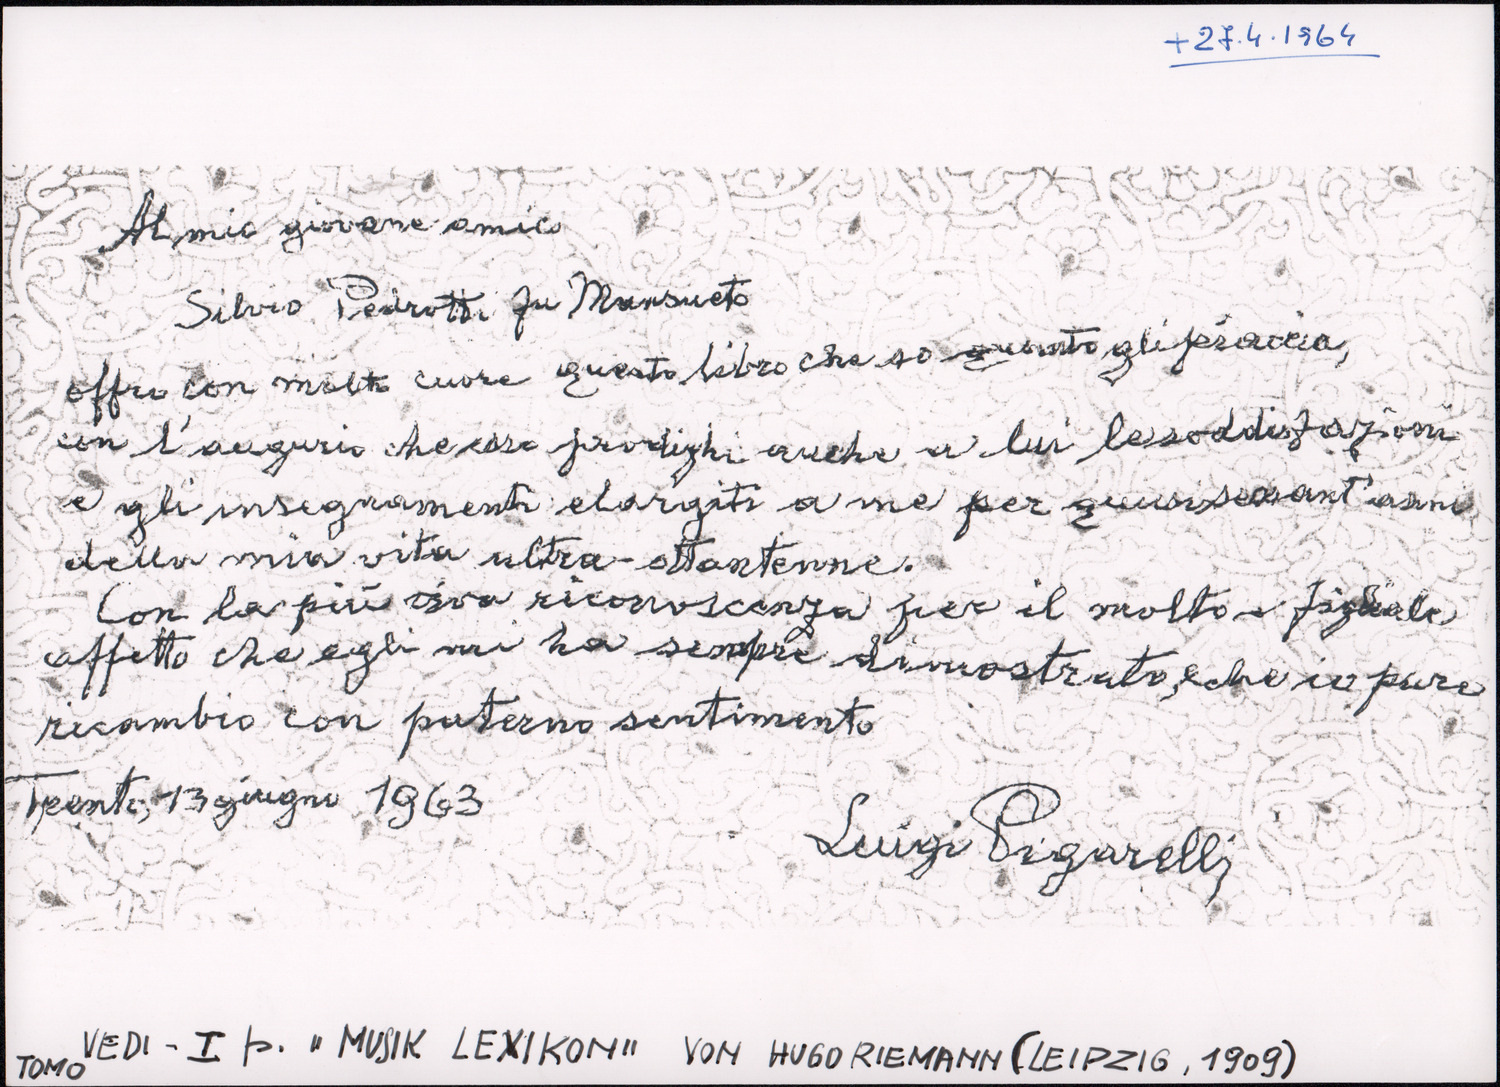 +27.4.1964
Al mio giovane amico
Silvio Pedrotti fu Mansueto
offro con molto cuore questo libro che so quanto gli piaccia,
con l'augurio che esso prodighi anche a lui le soddisfazioni
e gli insegnamenti elargiti a me per quasi sessant'anni
della mia vita ultra-ottantenne.
Con la più viva riconoscenza per il molto e figliale
affetto che egli mi ha sempre dimostrato, e che io pure
ricambio con paterno sentimento
Trento, 13 giugno 1963
Luigi Pigarelli
TOMO VEDI - I p. "MUSIK LEXIKON" VON HUGO RIEMANN (LEIPZIG, 1909)